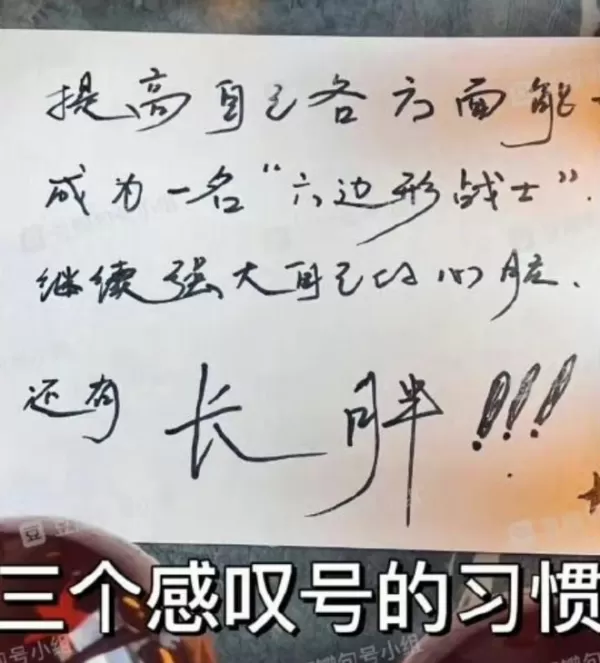 提高自己各方面能
成为一名“六边形战士”.
继续强大自己的心脏.
还有 长胖!!!
三个感叹号的习惯